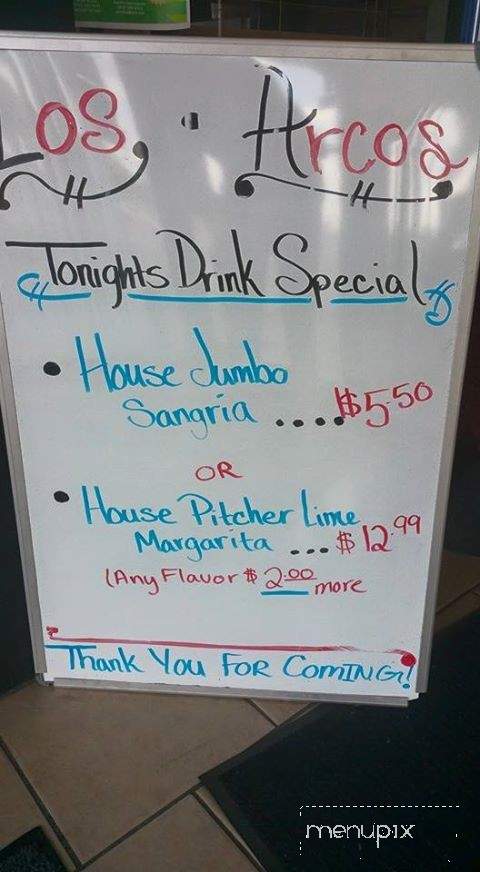 Los · Arcos
Tonights Drink Special
• House Jumbo
Sangria ....$5.50
OR
• House Pitcher Lime
Margarita ... $12.99
(Any Flavor $2.00 more
Thank You For Coming!
menupix